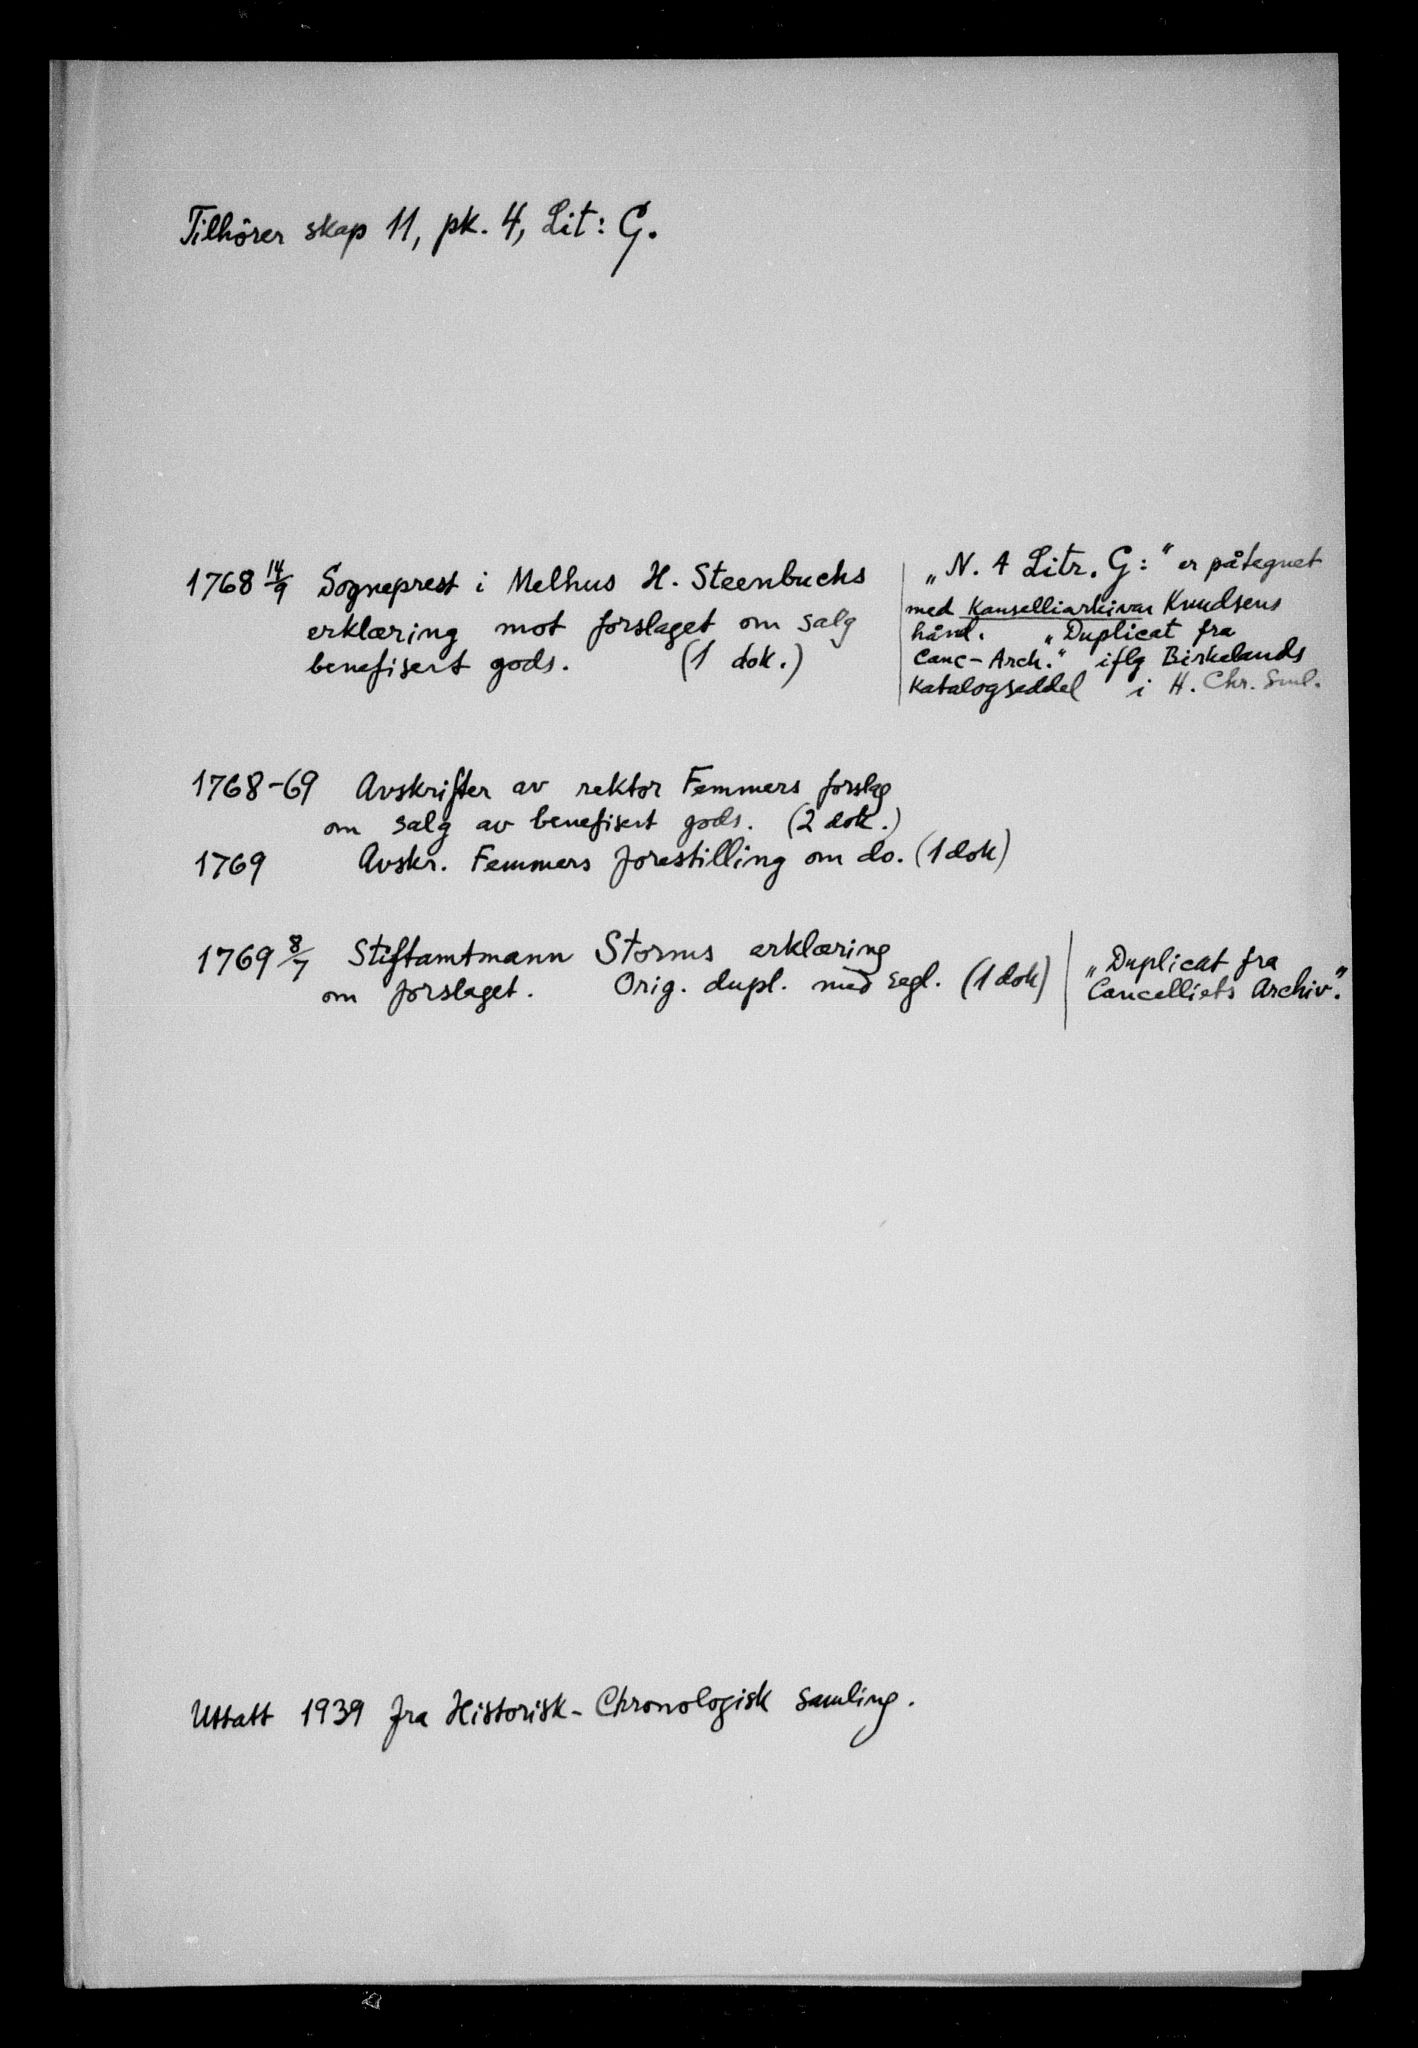 Tilhörer skap 11, pk. 4, Lit: G.
1768 14/9 Sogneprest i Melhus H. Steenbuchs
erklæring mot forslaget om salg
benefisert gods. (1 dok.)
„N. 4 Litr. G:" er påtegnet
med Kanselliarkivar Knudsens
hånd. „Duplicat fra
Canc-Arch." iflg Birkelands
Katalogseddel i H. Chr. Sml.
1768-69 Avskrifter av rektor Femmers forslag
om salg av benefisert gods. (2 dok.)
1769 Avskr. Femmers forestilling om do. (1 dok)
1769 8/7 Stiftamtmann Storms erklæring
om forslaget. Orig. dupl. med segl. (1 dok)
„Duplicat fra
Cancelliets Archiv."
Uttatt 1939 fra Historisk-Chronologisk samling.